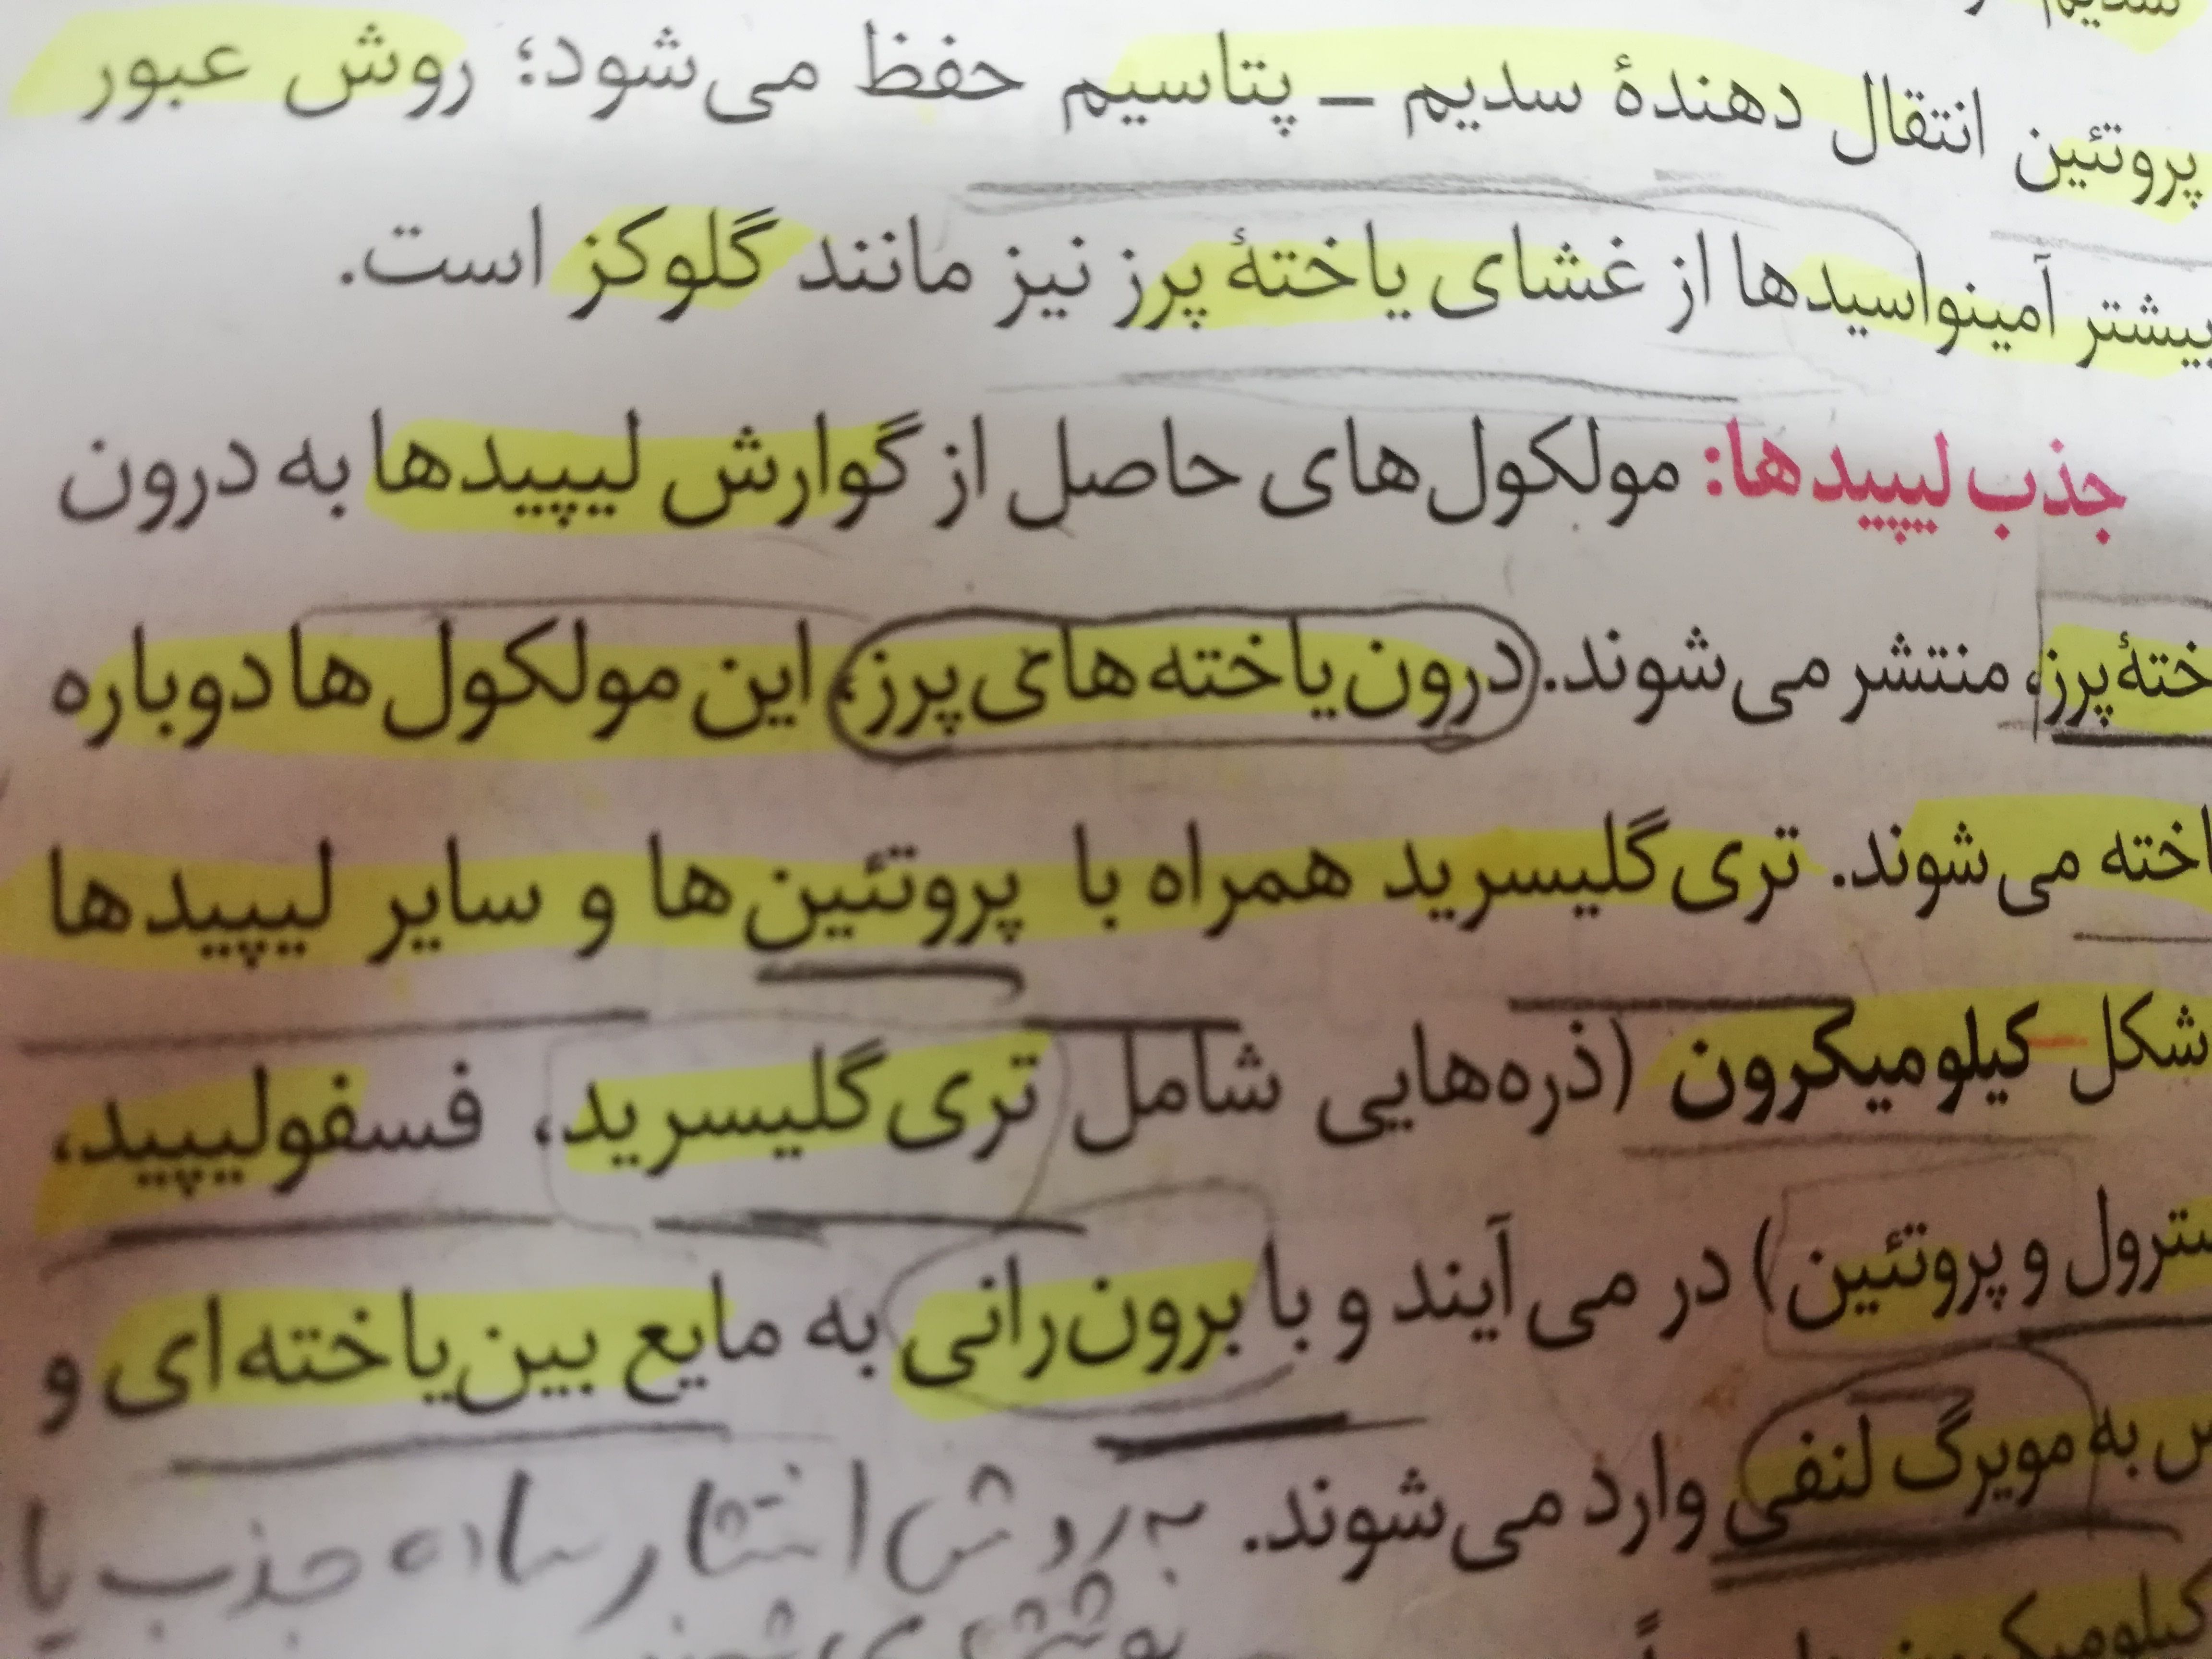 سدیم
پروتئین انتقال دهندهٔ سدیم ـ پتاسیم حفظ می‌شود؛ روش عبور
بیشتر آمینواسیدها از غشای یاختهٔ پرز نیز مانند گلوکز است.
جذب لیپیدها: مولکول‌های حاصل از گوارش لیپیدها به درون
ختهٔ پرز، منتشر می‌شوند. درون یاخته‌های پرز، این مولکول‌ها دوباره
اخته می‌شوند. تری‌گلیسرید همراه با پروتئین‌ها و سایر لیپیدها
شکل کیلومیکرون (ذره‌هایی شامل تری‌گلیسرید، فسفولیپید،
سترول و پروتئین) در می‌آیند و با برون‌رانی به مایع بین‌یاخته‌ای و
س به مویرگ لنفی وارد می‌شوند. به روش انتشار ساده جذب یا
کیلومیکرون